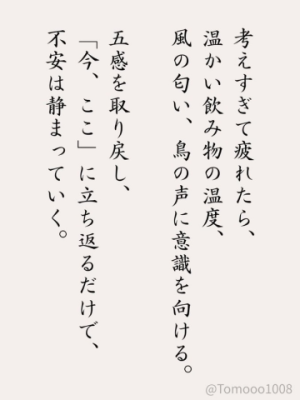 考えすぎて疲れたら、
温かい飲み物の温度、
風の匂い、鳥の声に意識を向ける。
五感を取り戻し、
「今、ここ」に立ち返るだけで、
不安は静まっていく。
@Tomooo1008